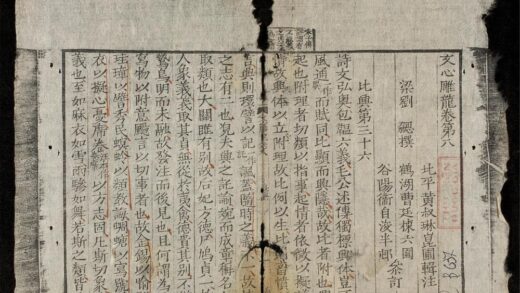 文心雕龍卷第八
北平黃叔琳崑圃輯注
梁劉勰撰 鶴湖曹廷棟六圃
谷陽衞自浚半邨 參訂
比興第三十六
詩文弘奧包韞六義毛公述傳獨標興體豈
風通 作而賦同比顯而興隱哉故比者附也興
起也附理者切類以指事起情者依微以擬
情故興體以立附理故比例以生比則畜憤
言興則環譬以記諷蓋隨時之義 一故
之志有二也觀夫興之託諭婉而成章稱名
取類也大關雎有別故后妃方德尸鳩貞一
人象義義取其貞無從於夷禽德貴其別不
鷙鳥明而未融故發注而後見也且何謂為
寫物以附意颺言以切事者也故金錫以喻
珪璋以譬秀民螟蛉以類教誨蜩螗以寫號
衣以擬心憂席卷以方志固凡斯切象
義也至如麻衣如雪兩驂如舞若斯之類皆